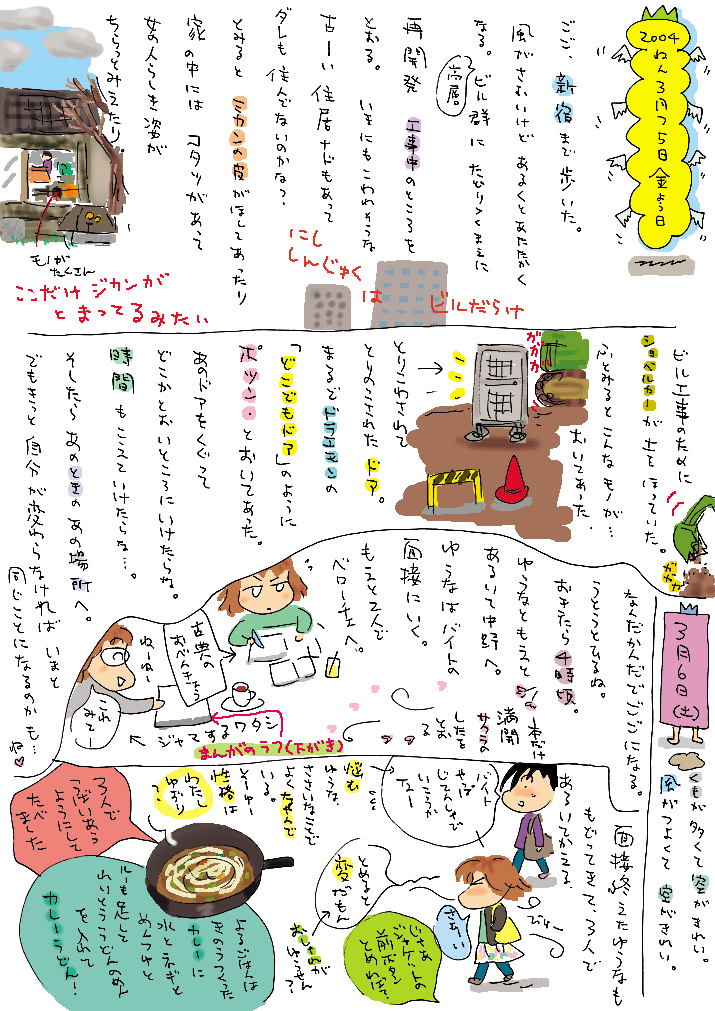 2004
ねん3月つ5日金よう日
ごご、新宿まで歩いた。
風がさむいけど あるくとあたたかく
なる。ビル群に たどりつくまえに
高層
再開発 工事中のところを
とおる。 いまにもこわれそうな
古ーい 住居ナドもあって
ダレも住んでないのかな?
とみると ミカンの皮がほしてあったり
家の中には コタツがあって
女の人らしき姿が
ちらっとみえたり。
モノが
たくさん
ここだけ ジカンが
とまってるみたい
にし
しんじゅく
は
ビルだらけ
ビル工事のために
ショベルカーが土をほっていた。
ふとみるとこんなモノが…
おいてあった。
ガガガ
ガガガ
とりこわされて
とりのこされた ドア。
まるでドラエモンの
「どこでもドア」のように
ポツン・とおいてあった。
あのドアをくぐって
どこかとおいところにいけたらね。
時間もこえていけたらな…。
そしたらあのときのあの場所へ。
でもきっと自分が変わらなければ いまと
同じことになるのかも…
ね
3月6日(土)
くもが多くて空がきれい。
風がつよくて 空がきれい。
なんだかんだでごごになる。
うとうとひるね。
おきたら4時頃。
ゆうなともえと
あるいて中野へ。
ゆうなはバイトの
面接にいく。
もえと2人で
ベローチェへ。
本だけ
満開
サクラの
したを
とお
る
古典の
おべんきょう
ねーねー
これ
みてー
ジャマするワタシ
まんがのラフ(下がき)
面接終えたゆうなも
もどってきて、3人で
あるいてかえる。
バイト
やば
じてんしゃで
いこうか
なー
悩む
ゆうな。
ささいなことで
よくなやんで
いる。
そーゆー
性格は
わたし
ゆずり
?
さむい
ぴゅー
じゃあ
ジャケットの
前ボタン
とめれば?
とめると
変だもん
おしゃれが
ゆうせん?
3人で
つばいあう
ようにして
たべ
ました
よるごはんは
きのうつくった
カレーに
水とネギと
めんつゆと
ルーも足して
れいとううどんのめん
を入れて
カレーうどん!